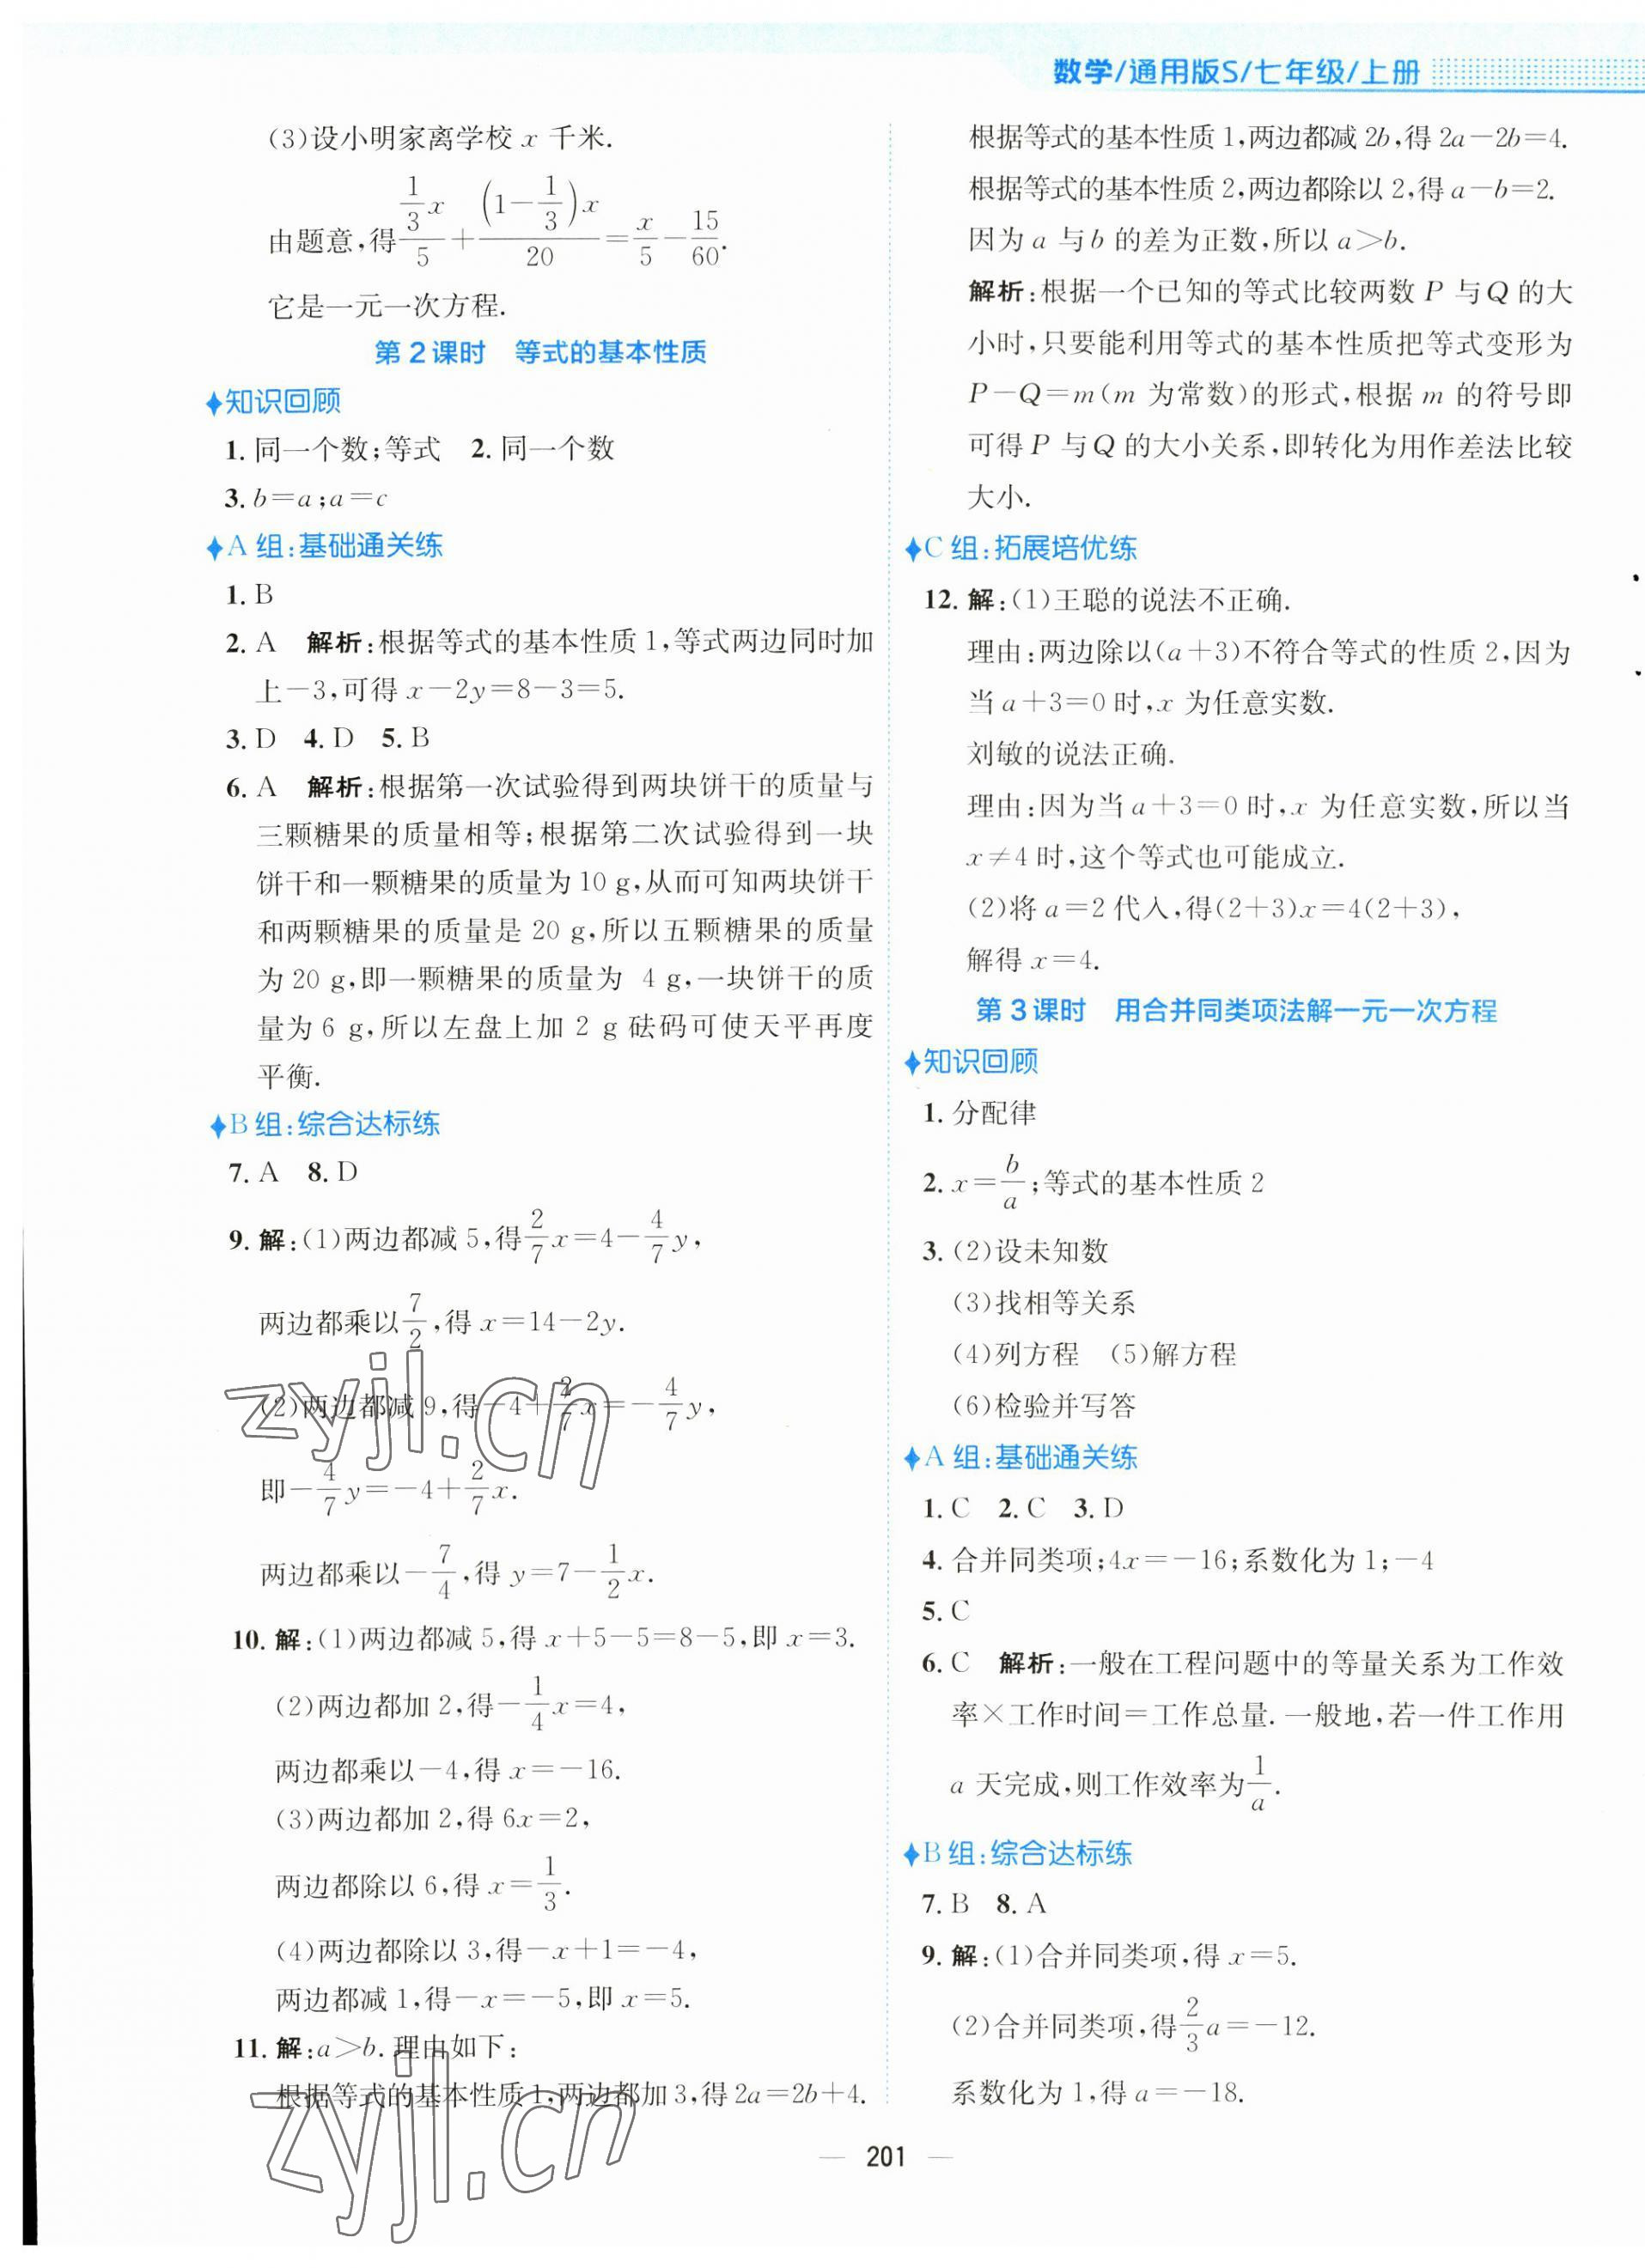 数学/通用版S/七年级/上册
(3)设小明家离学校 x 千米.
由题意,得(1/3 x)/5+((1-1/3)x)/20=x/5-15/60.
它是一元一次方程.
第 2 课时 等式的基本性质
知识回顾
1. 同一个数;等式 2. 同一个数
3. b=a;a=c
A 组:基础通关练
1. B
2. A 解析:根据等式的基本性质 1,等式两边同时加
上-3,可得 x-2y=8-3=5.
3. D 4. D 5. B
6. A 解析:根据第一次试验得到两块饼干的质量与
三颗糖果的质量相等;根据第二次试验得到一块
饼干和一颗糖果的质量为 10 g,从而可知两块饼干
和两颗糖果的质量是 20 g,所以五颗糖果的质量
为 20 g,即一颗糖果的质量为 4 g,一块饼干的质
量为 6 g,所以左盘上加 2 g 砝码可使天平再度
平衡.
B 组:综合达标练
7. A 8. D
9. 解:(1)两边都减 5,得2/7 x=4-4/7 y,
两边都乘以7/2,得 x=14-2y.
(2)两边都减 9,得-4+2/7 x=-4/7 y,
即-4/7 y=-4+2/7 x.
两边都乘以-7/4,得 y=7-1/2 x.
10. 解:(1)两边都减 5,得 x+5-5=8-5,即 x=3.
(2)两边都加 2,得-1/4 x=4,
两边都乘以-4,得 x=-16.
(3)两边都加 2,得 6x=2,
两边都除以 6,得 x=1/3.
(4)两边都除以 3,得-x+1=-4,
两边都减 1,得-x=-5,即 x=5.
11. 解:a>b. 理由如下:
根据等式的基本性质 1,两边都加 3,得 2a=2b+4.
根据等式的基本性质 1,两边都减 2b,得 2a-2b=4.
根据等式的基本性质 2,两边都除以 2,得 a-b=2.
因为 a 与 b 的差为正数,所以 a>b.
解析:根据一个已知的等式比较两数 P 与 Q 的大
小时,只要能利用等式的基本性质把等式变形为
P-Q=m(m 为常数)的形式,根据 m 的符号即
可得 P 与 Q 的大小关系,即转化为用作差法比较
大小.
C 组:拓展培优练
12. 解:(1)王聪的说法不正确.
理由:两边除以(a+3)不符合等式的性质 2,因为
当 a+3=0 时,x 为任意实数.
刘敏的说法正确.
理由:因为当 a+3=0 时,x 为任意实数,所以当
x≠4 时,这个等式也可能成立.
(2)将 a=2 代入,得(2+3)x=4(2+3),
解得 x=4.
第 3 课时 用合并同类项法解一元一次方程
知识回顾
1. 分配律
2. x=b/a;等式的基本性质 2
3. (2)设未知数
(3)找相等关系
(4)列方程 (5)解方程
(6)检验并写答
A 组:基础通关练
1. C 2. C 3. D
4. 合并同类项;4x=-16;系数化为 1;-4
5. C
6. C 解析:一般在工程问题中的等量关系为工作效
率×工作时间=工作总量. 一般地,若一件工作用
a 天完成,则工作效率为1/a.
B 组:综合达标练
7. B 8. A
9. 解:(1)合并同类项,得 x=5.
(2)合并同类项,得2/3 a=-12.
系数化为 1,得 a=-18.
zyjl.cn
zyjl.cn
— 201 —